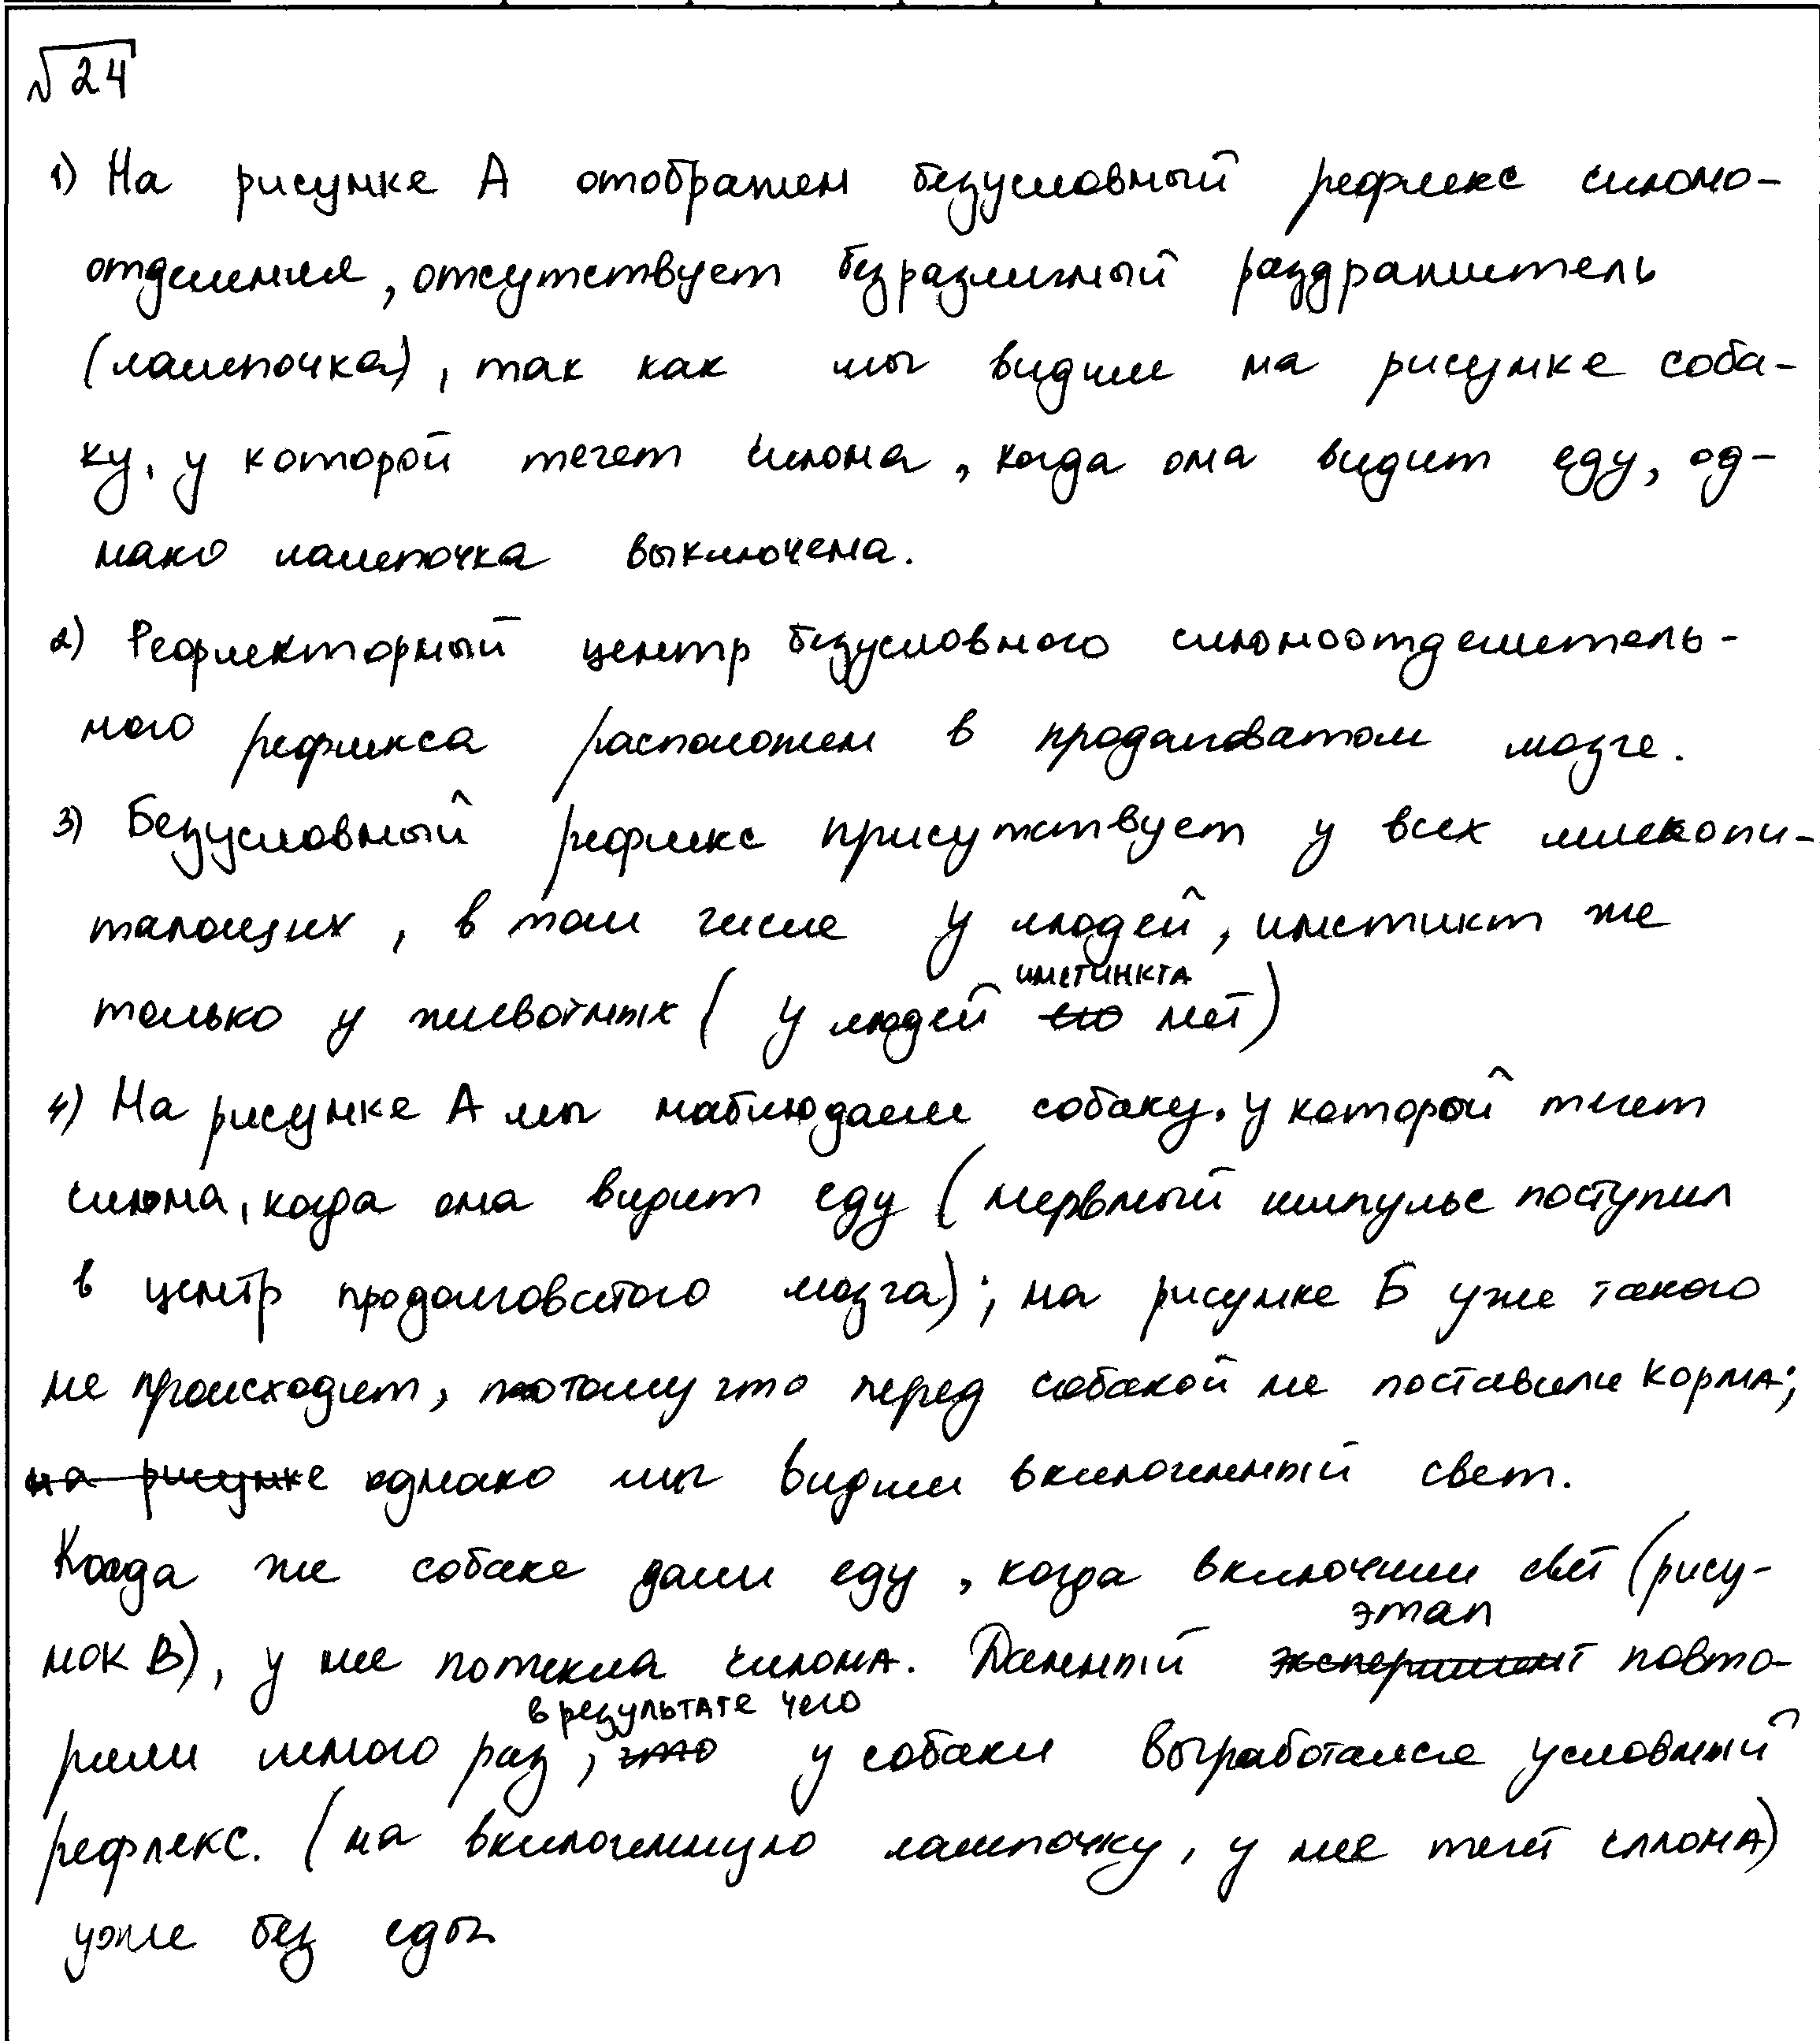 √24
1) На рисунке А отображен безусловный рефлекс слюно-
отделения, отсутствует безразличный раздражитель
(лампочка), так как мы видим на рисунке соба-
ку, у которой течет слюна, когда она видит еду, од-
нако лампочка выключена.
2) Рефлекторный центр безусловного слюноотделитель-
ного рефлекса расположен в продолговатом мозге.
3) Безусловный рефлекс присутствует у всех млекопи-
тающих, в том числе у людей, инстикт же
только у животных ( у людей инстинкта нет)
4) На рисунке А мы наблюдаем собаку, у которой течет
слюна, когда она видит еду (нервный импульс поступил
в центр продолговатого мозга); на рисунке Б уже такого
не происходит, потому что перед собакой не поставили корма;
на рисунке однако мы видим включенный свет.
Когда же собаке дали еду, когда включили свет (рису-
нок В), у нее потекла слюна. Данный эксперимент этап повто-
рили много раз, что в результате чего у собаки выработался условный
рефлекс. (на включенную лампочку, у нее течет слюна)
уже без еды